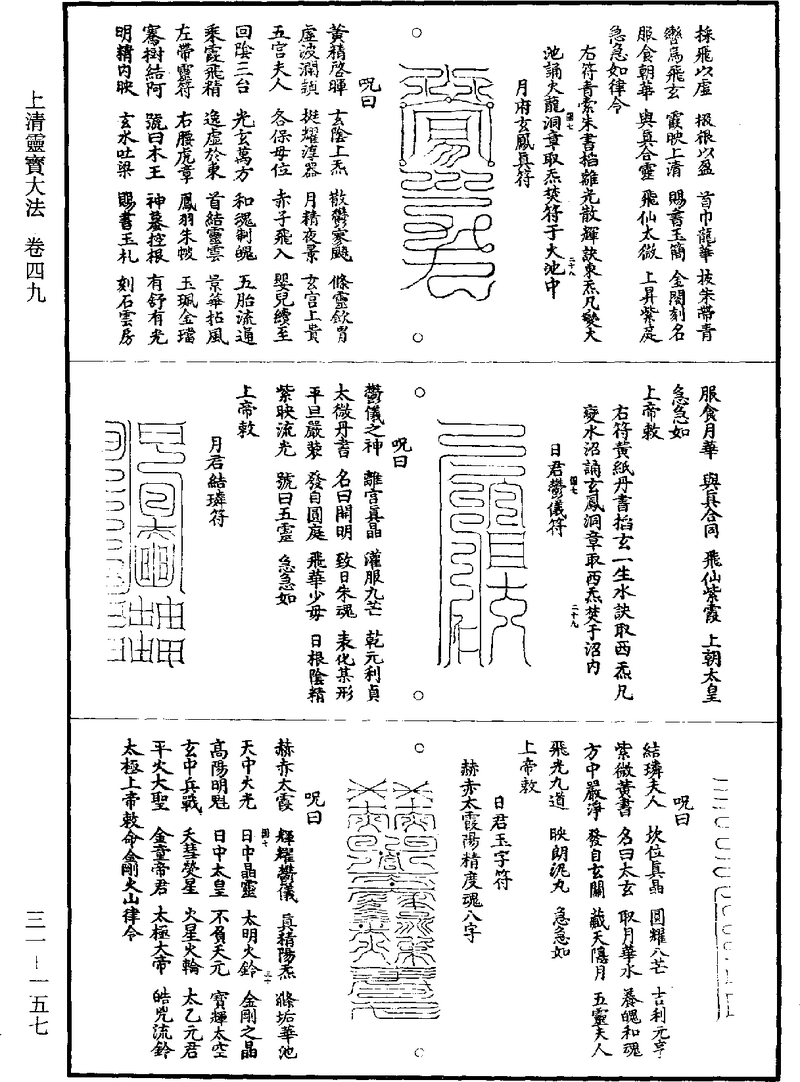 採飛以虛　掇根以盈　首巾龍華　披朱帶青
轡烏飛玄　霞映上清　賜書玉簡　金閣刻名
服食朝華　與真合靈　飛仙太微　上昇紫庭
急急如律令
右符青素朱書掐離光散輝訣東炁凡變大
池誦火龍洞章取炁焚符于火池中
月府玄鳳真符
呪曰
黃精啓暉　玄陰上炁　散鬱寥颷　條靈歛冑
虛波瀾鎮　挺耀淳器　月精夜景　玄宫上貴
五宫夫人　各保母位　赤子飛入　嬰兒續至
回陰三台　光玄萬方　和魂制魄　五胎流通
乘霞飛精　逸虛於東　首結靈雲　景華招風
左帶靈符　右腰虎章　鳳羽朱帔　玉珮金璫
騫樹結阿　號曰木王　神墓控根　有舒有光
明精内映　玄水吐梁　賜書玉札　刻石雲房
服食月華　與真合同　飛仙紫霞　上朝太皇
急急如
上帝敕
右符黃紙丹書掐玄一生水訣取西炁凡
變水沼誦玄鳳洞章取西炁焚于沼内
日君鬱儀符
呪曰
鬱儀之神　離宫真晶　灌服九芒　乾元利貞
太微丹書　名曰開明　致日朱魂　表化某形
平旦嚴裝　發自圓庭　飛華少母　日根陰精
紫映流光　號曰五靈　急急如
上帝敕
月君結璘符
呪曰
結璘夫人　坎位真晶　圓耀八芒　吉利元亨
紫微黃書　名曰太玄　取月華水　養魄和魂
方中嚴淨　發自玄關　藏天隱月　五靈夫人
飛光九道　映朗泥丸　急急如
上帝敕
日君玉字符
赫赤太霞陽精度魂八字
呪曰
赫赤太霞　輝耀鬱儀　真精陽炁　滌垢華池
天中火光　日中晶靈　太明火鈴　金剛之晶
高陽明魁　日中太皇　不負天元　寶輝太空
玄中兵戰　天彗熒星　火星火輪　太乙元君
平火大聖　金童帝君　太極大帝　皓咒流鈴
太極上帝敕命金剛火山律令
上清靈寶大法　卷四九
三一－一五七